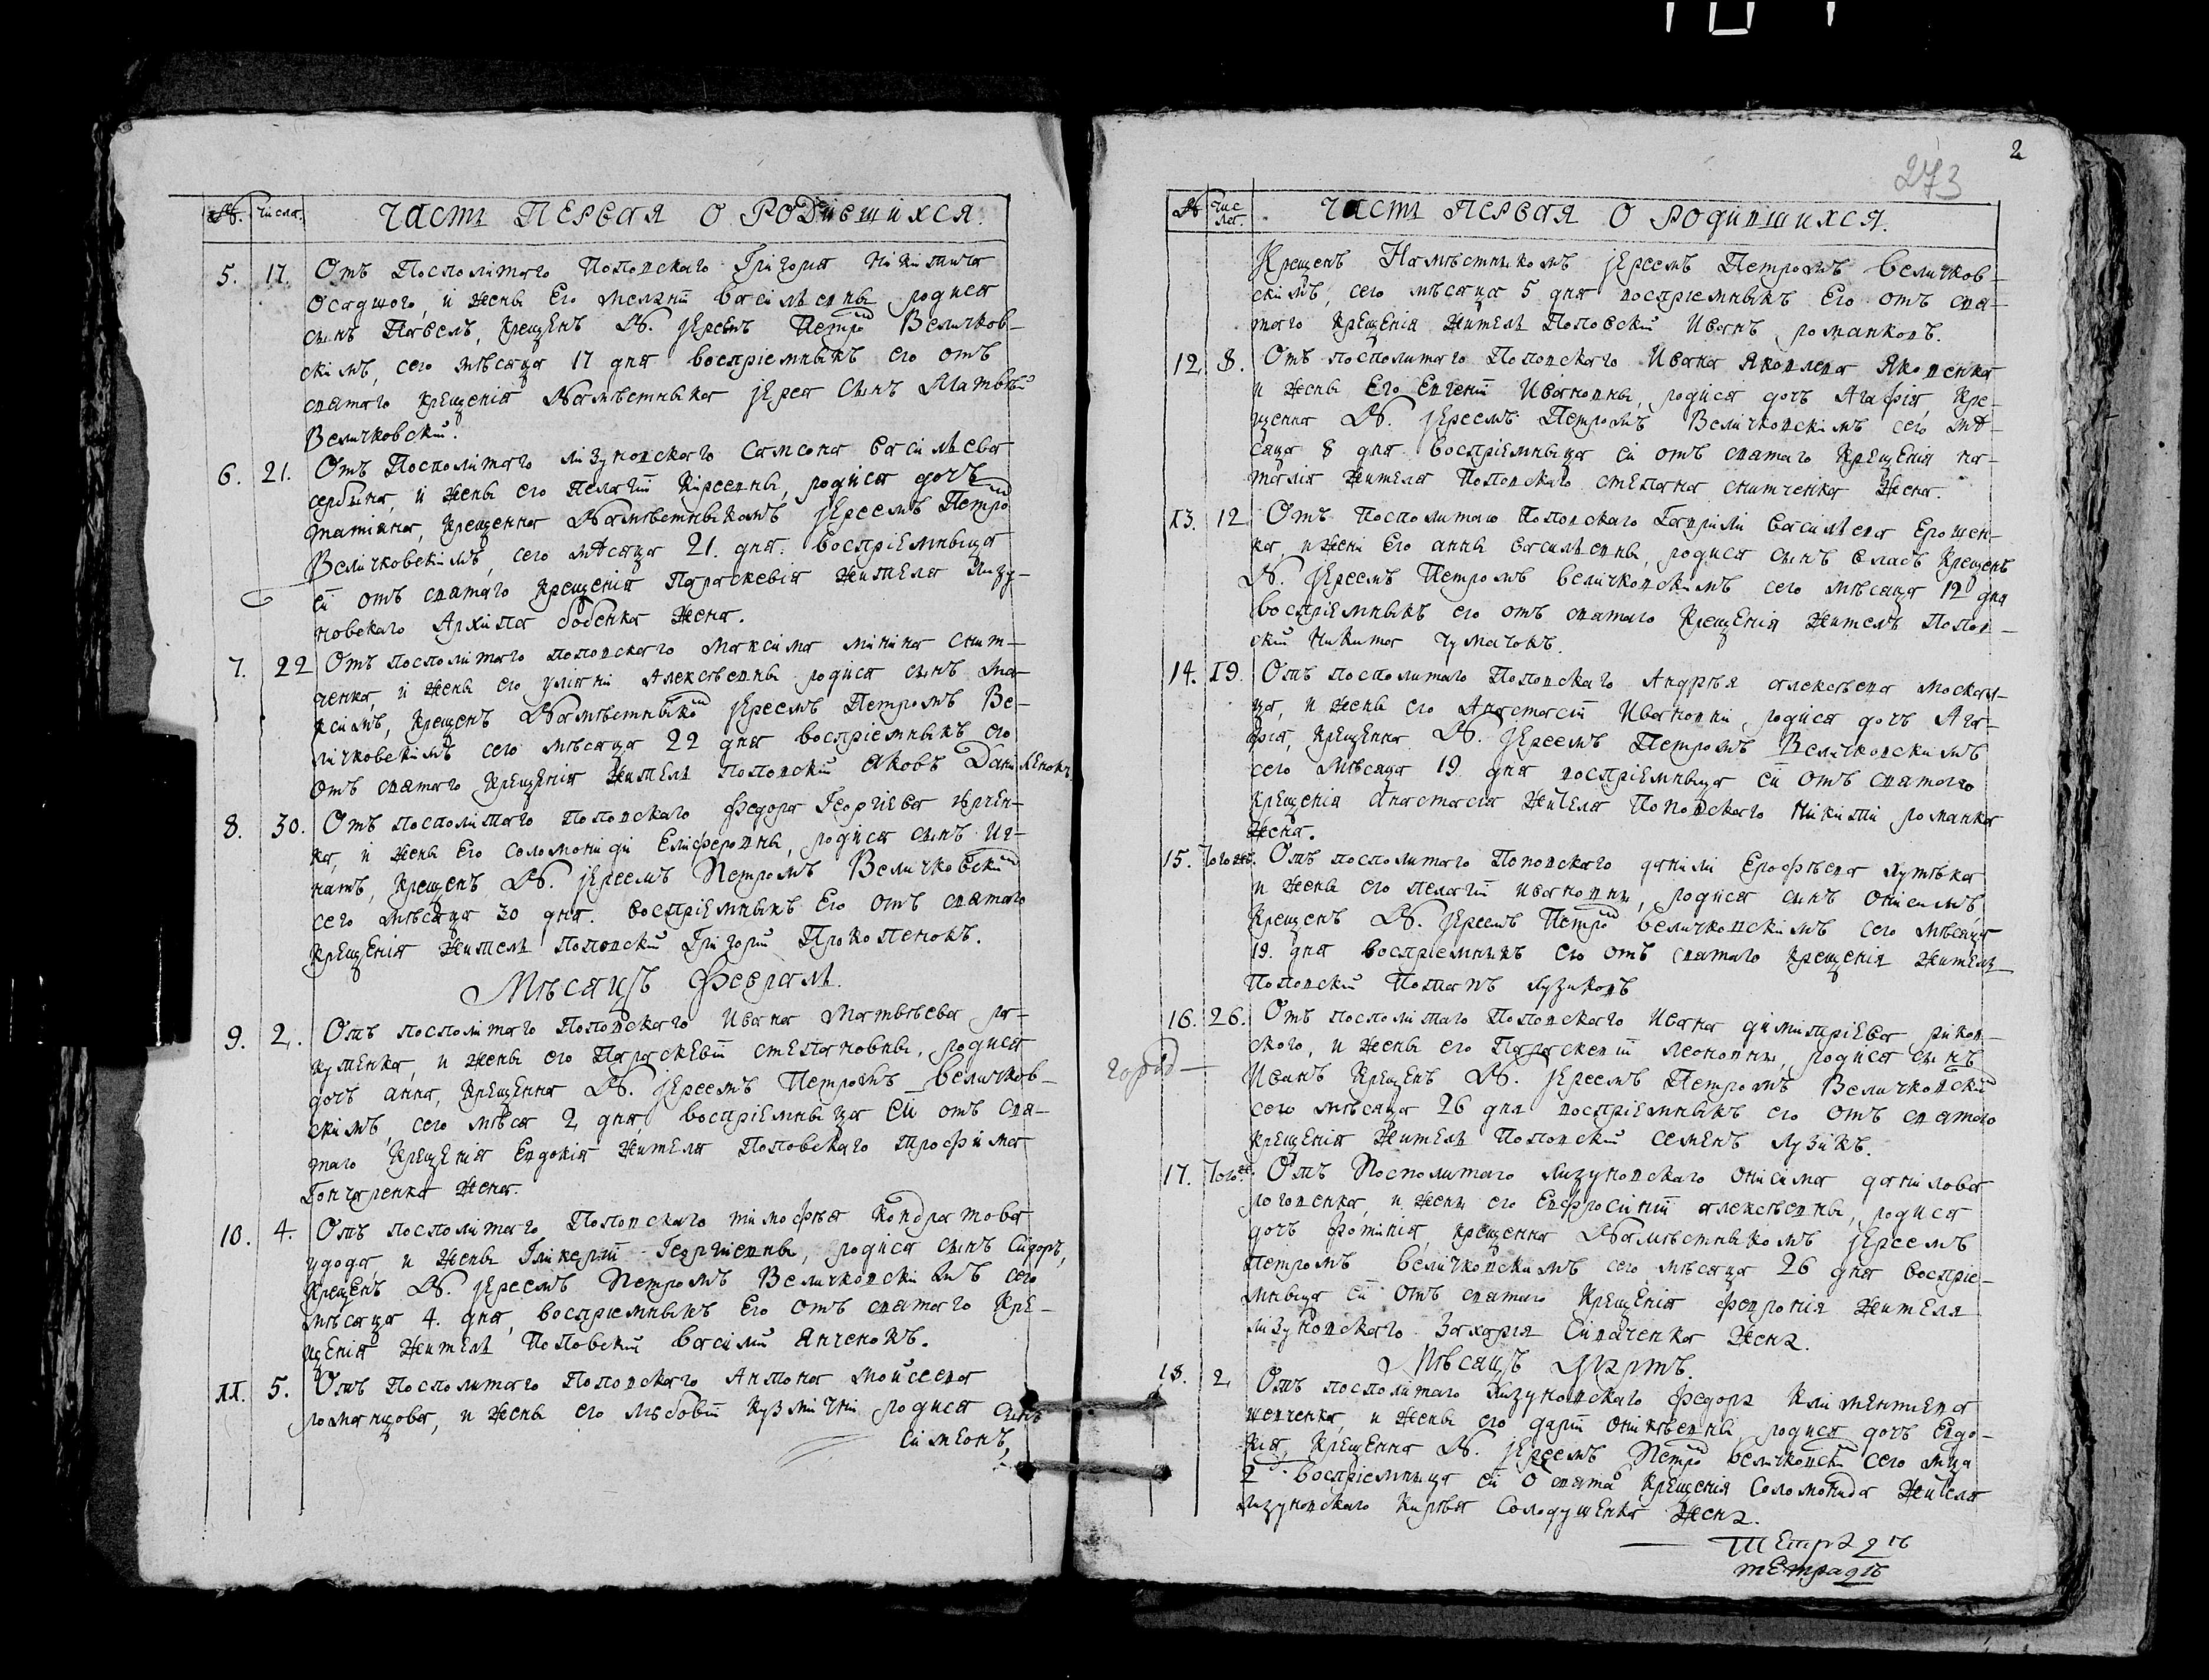 №. числа. Часть первая о родившихся.
5. 17. Отъ Посполитаго Поповскаго Григорія Никитича
Осадшого, и жены Его Меланіи василевны родися
сынъ Павелъ, крещенъ Н. јереемъ Петро Величков-
скимъ, сего мѣсяца 17 дня воспріемникъ его отъ
святаго крещенія Намѣстника јерея Сынъ Матвѣй
Величковскій.
6. 21. Отъ Посполитаго лизуновскаго Самсона василева
сербина, и жены его Пелагіи Кіреевны, родися дочь
татіяна, крещенна Намѣстникомъ јереемъ Петро
Величковскимъ, сего мѣсяца 21. дня. воспріемница
ей отъ святаго крещенія Параскевія жителя лизу-
новскаго Архипа бобенка жена.
7. 22 Отъ посполитаго поповскаго Максима минина снит-
ченка, и жены его уліяніи Алексѣевны родися сынъ Ма-
ксимъ, крещенъ Намѣстнико јереемъ Петромъ Ве-
личковскимъ сего мѣсяца 22 дня воспріемникъ его
отъ святаго крещенія жителя поповскій яковъ Даниленокъ
8. 30. Отъ посполитаго поповскаго Федора Георгіева
ка, и жены Его соломониди Еліферовны, родися сынъ Иг-
натъ, крещенъ Н. јереемъ Петромъ Величковски
сего мѣсяца 30 дня. воспріемникъ Его отъ святаго
крещенія житель поповскій Григорій Прокопенокъ.
Мѣсяцъ Февраль.
9. 2. Отъ посполитаго Поповскаго Ивана Матвѣева ра-
кутенка, и жены его Параскевіи степановны, родися
дочь анна, крещенна Н. јереемъ Петромъ величков-
скимъ, сего мѣсяца 2 дня, воспріемница ей отъ свя-
таго крещенія Евдокія жителя Поповскаго трофима
Гончаренка жена.
10. 4. Отъ посполитаго Поповскаго тимофѣя кондратова
удода, и жены Гликеріи Георгіевны, родися сынъ Сидоръ,
крещенъ Н. јереемъ Петромъ Величковскимъ сего
мѣсяца 4. дня, воспріемникъ Его отъ святаго кре-
щенія житель Поповскій василій Янченокъ.
11. 5. Отъ Посполитаго Поповскаго Антона мойсеева
романцова, и жены его любовіи кузмічни родися сынъ
симеонъ,
2
273
№ Чис
ла. Часть первая о родившихся.
Крещенъ Намѣстникомъ јереемъ Петромъ величков-
скимъ, сего мѣсяца 5 дня воспріемникъ Его отъ свя-
таго крещенія житель Поповскій Иванъ романковъ.
12. 8. Отъ посполитаго Поповскаго Ивана Яковлева Яковенка
и жены Его Евгеніи Ивановны, родися дочь Агафія, кре-
щенна Н. јереемъ Петромъ Величковскимъ сего мѣ-
сяца 8 дня воспріемница ей отъ святаго крещенія на-
талія жителя Поповскаго степана снитченка жена.
13. 12 Отъ Посполитаго Поповскаго Гавріли василіева Ерощен-
ка, и жени Его анны василевны, родися сынъ власъ крещенъ
Н. јереемъ Петромъ величковскимъ сего мѣсяца 12 дня
воспріемникъ его отъ святаго крещенія жителъ Попов-
скій Никита чумачокъ.
14. 19. Отъ посполитаго Поповскаго Андрѣя алексѣева москал-
ца, и жены его Анастасіи Ивановни, родися дочь Ага-
фія, крещенна Н. јереемъ Петромъ Величковскимъ
сего мѣсяца 19 дня воспріемница ей отъ святаго
крещенія Анастасія жителя Поповскаго никити романка
жена.
15. Тогожъ. Отъ посполитаго Поповскаго даніли Ерофѣева
и жены его пелагіи ивановны, родися сынъ Онисимъ,
крещенъ Н. јереемъ Петро величковскимъ сего мѣсяца
19. дня воспріемникъ его отъ святаго крещенія житель
Поповскій Потапъ лузиковъ
16. 26. Отъ посполитаго Поповскаго Ивана димітріева риков-
ского, и жены его Параскевіи леоновны, родися сынъ
Иванъ крещенъ Н. јереемъ Петромъ Величковски
сего мѣсяца 26 дня воспріемникъ его отъ святаго
крещенія житель Поповскій семенъ лузикъ.
17. Тогожъ Отъ Посполитаго лизуновскаго Онісима данілова
роговенка, и жены его Евфросиніи алексѣевны, родися
дочь фотинія, крещенна Намѣстникомъ јереемъ
Петромъ величковскимъ сего мѣсяца 26 дня воспріе-
мница ей отъ святаго крещенія февронія жителя
лизуновскаго Захарія Сиваченка жена.
Мѣсяцъ Мартъ.
18. 2, Отъ посполитаго лизуновскаго федора климентіева
шевченка, и жены его даріи Оникѣевны родися дочь Евдо-
кія, крещенна Н. јереемъ Петро величковски сего мца
2 воспріемница ей о свята крещенія соломонида жителя
лизуновскаго кирѣя Солодушенка жена.
Тетрадь
тетрадь